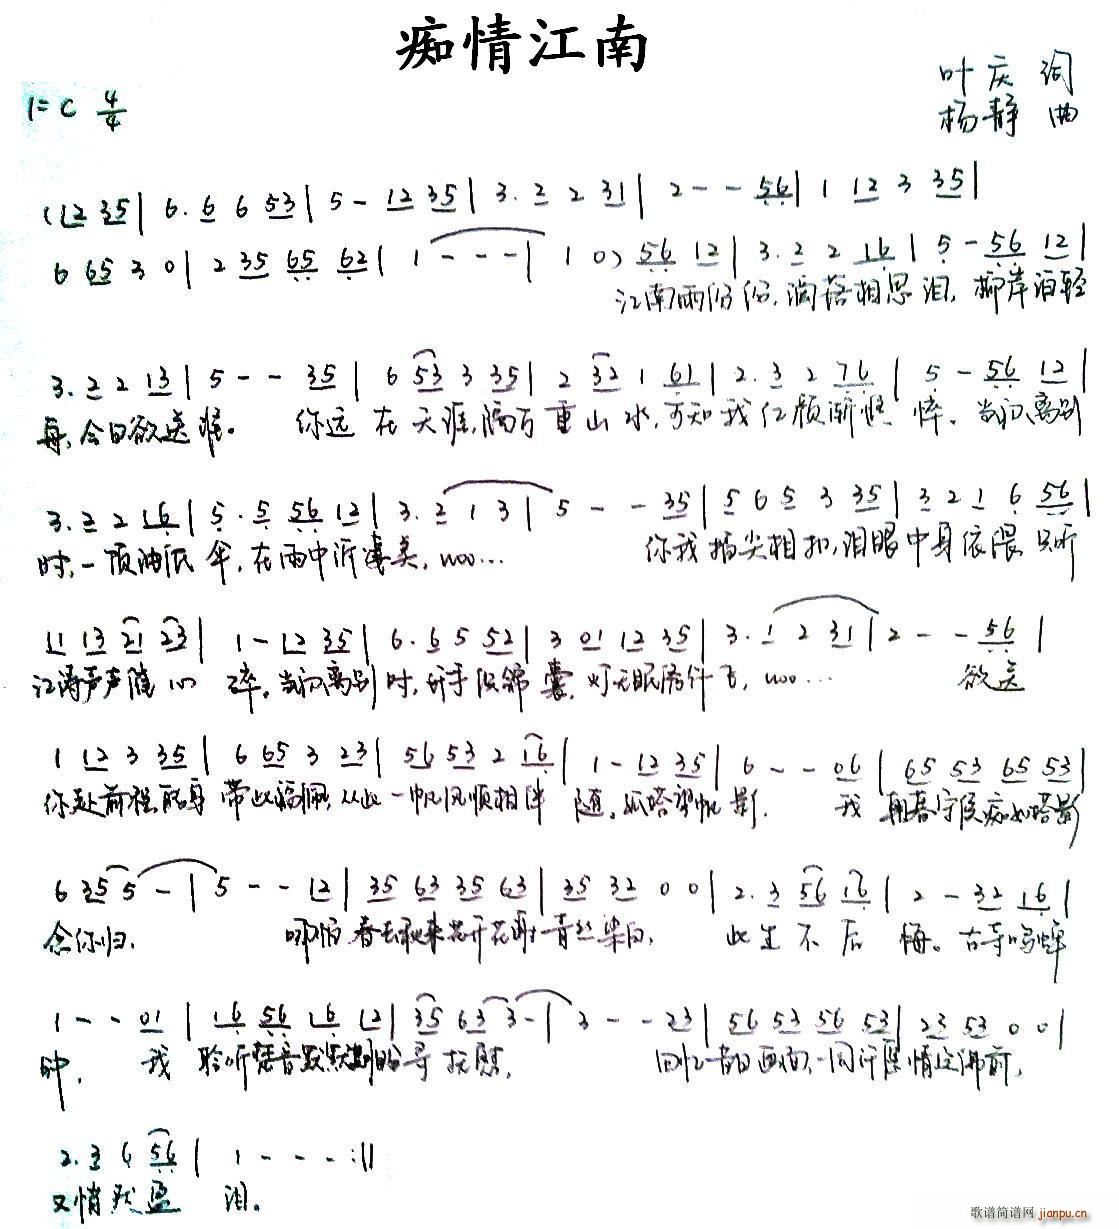 痴情江南
叶庆 词
1=C 4/4
杨静 曲
(12 35| 6. 6 6 53| 5 - 12 35| 3. 2 2 31| 2 - - 56| 1 12 3 35|
6 65 3 0| 2 35 65 62| 1 - - -| 1 0) 56 12| 3. 2 2 16| 5 - 56 12|
江南雨份份,滴落相思泪,柳岸泊轻
3. 2 2 13| 5 - - 35| 6 53 3 35| 2 32 1 61| 2. 3 2 76| 5 - 56 12|
每,今日欲送谁。 你远在天涯,隔万重山水,可知我红颜渐憔悴。当初离别
3. 2 2 16| 5. 5 56 12| 3. 2 1 3| 5 - - 35| 5 6 5 3 35| 3 2 1 6 56|
时,一顶油纸伞,在雨中诉凄美,woo... 你我指尖相扣,泪眼中身依偎 只听
11 13 21 23| 1 - 12 35| 6. 6 5 52| 3 01 12 35| 3. 1 2 31| 2 - - 56|
江涛声声随心碎。当初离别时,锦囊,woo... 欲送
1 12 3 35| 6 65 3 23| 56 53 2 16| 1 - 12 35| 6 - - 06| 65 53 65 53|
你赴前程 带此福佩,从此一帆风顺相伴随。孤塔望帆影. 我 朝暮守候痴如塔影
6 35 5 -| 5 - - 12| 35 63 35 63| 35 32 0 0| 2. 3 56 16| 2 - 32 16|
念你归. 哪怕春去秋来花开花谢青丝染白, 此生不后悔。古寺鸣蝉
1 - - 01| 16 56 16 12| 35 63 3 -| 3 - - 23| 56 53 56 53| 23 53 0 0|
中, 我 聆听梵音默默寻抚慰, 回忆昔日画面,一同许愿情定佛前,
2. 3 6 56| 1 - - - :||
又悄然盈 泪。
歌谱简谱网 jianpu.cn